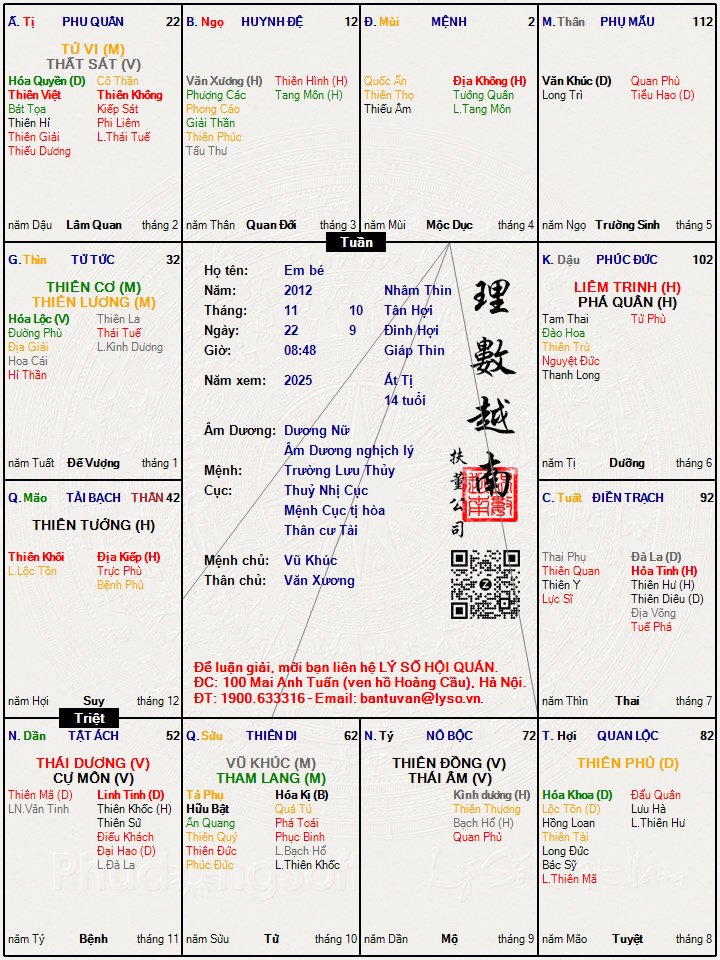 Ấ. Tị PHU QUÂN 22
TỬ VI (M)
THẤT SÁT (V)
Hóa Quyền (D) Cô Thần
Thiên Việt Thiên Không
Bát Tọa Kiếp Sát
Thiên Hỉ Phi Liêm
Thiên Giải L.Thái Tuế
Thiếu Dương
năm Dậu Lâm Quan tháng 2
B. Ngọ HUYNH ĐỆ 12
Văn Xương (H) Thiên Hình (H)
Phượng Các Tang Môn (H)
Phong Cáo
Giải Thần
Thiên Phúc
Tấu Thư
năm Thân Quan Đới tháng 3
Đ. Mùi MỆNH 2
Quốc Ấn Địa Không (H)
Thiên Thọ Tướng Quân
Thiếu Âm L.Tang Môn
năm Mùi Mộc Dục tháng 4
M. Thân PHỤ MẪU 112
Văn Khúc (D) Quan Phù
Long Trì Tiểu Hao (D)
năm Ngọ Trường Sinh tháng 5
Tuần
G. Thìn TỬ TỨC 32
THIÊN CƠ (M)
THIÊN LƯƠNG (M)
Hóa Lộc (V) Thiên La
Đường Phù Thái Tuế
Địa Giải L.Kình Dương
Hoa Cái
Hỉ Thần
năm Tuất Đế Vượng tháng 1
Họ tên: Em bé
Năm: 2012 Nhâm Thìn
Tháng: 11 10 Tân Hợi
Ngày: 22 9 Đinh Hợi
Giờ: 08:48 Giáp Thìn
Năm xem: 2025 Ất Tị
14 tuổi
Âm Dương: Dương Nữ
Âm Dương nghịch lý
Mệnh: Trường Lưu Thủy
Cục: Thuỷ Nhị Cục
Mệnh Cục tị hòa
Thân cư Tài
Mệnh chủ: Vũ Khúc
Thân chủ: Văn Xương
理數越南
扶董公司
Để luận giải, mời bạn liên hệ LÝ SỐ HỘI QUÁN.
ĐC: 100 Mai Anh Tuấn (ven hồ Hoàng Cầu), Hà Nội.
ĐT: 1900.633316 - Email: bantuvan@lyso.vn.
K. Dậu PHÚC ĐỨC 102
LIÊM TRINH (H)
PHÁ QUÂN (H)
Tam Thai Tử Phù
Đào Hoa
Thiên Trù
Nguyệt Đức
Thanh Long
năm Tị Dưỡng tháng 6
Q. Mão TÀI BẠCH THÂN 42
THIÊN TƯỚNG (H)
Thiên Khôi Địa Kiếp (H)
L.Lộc Tồn Trực Phù
Bệnh Phù
năm Hợi Suy tháng 12
C. Tuất ĐIỀN TRẠCH 92
Thai Phụ Đà La (D)
Thiên Quan Hỏa Tinh (H)
Thiên Y Thiên Hư (H)
Lực Sĩ Thiên Diêu (D)
Địa Võng
Tuế Phá
năm Thìn Thai tháng 7
Triệt
N. Dần TẬT ÁCH 52
THÁI DƯƠNG (V)
CỰ MÔN (V)
Thiên Mã (D) Linh Tinh (D)
LN.Văn Tinh Thiên Khốc (H)
Thiên Sứ
Điếu Khách
Đại Hao (D)
L.Đà La
năm Tý Bệnh tháng 11
Q. Sửu THIÊN DI 62
VŨ KHÚC (M)
THAM LANG (M)
Tả Phụ Hóa Kị (B)
Hữu Bật Quả Tú
Ân Quang Phá Toái
Thiên Quý Phục Binh
Thiên Đức L.Bạch Hổ
Phúc Đức L.Thiên Khốc
năm Sửu Tử tháng 10
N. Tý NÔ BỘC 72
THIÊN ĐỒNG (V)
THÁI ÂM (V)
Kình dương (H)
Thiên Thương
Bạch Hổ (H)
Quan Phủ
năm Dần Mộ tháng 9
T. Hợi QUAN LỘC 82
THIÊN PHỦ (D)
Hóa Khoa (D) Đẩu Quân
Lộc Tồn (D) Lưu Hà
Hồng Loan L.Thiên Hư
Thiên Tài
Long Đức
Bác Sỹ
L.Thiên Mã
năm Mão Tuyệt tháng 8